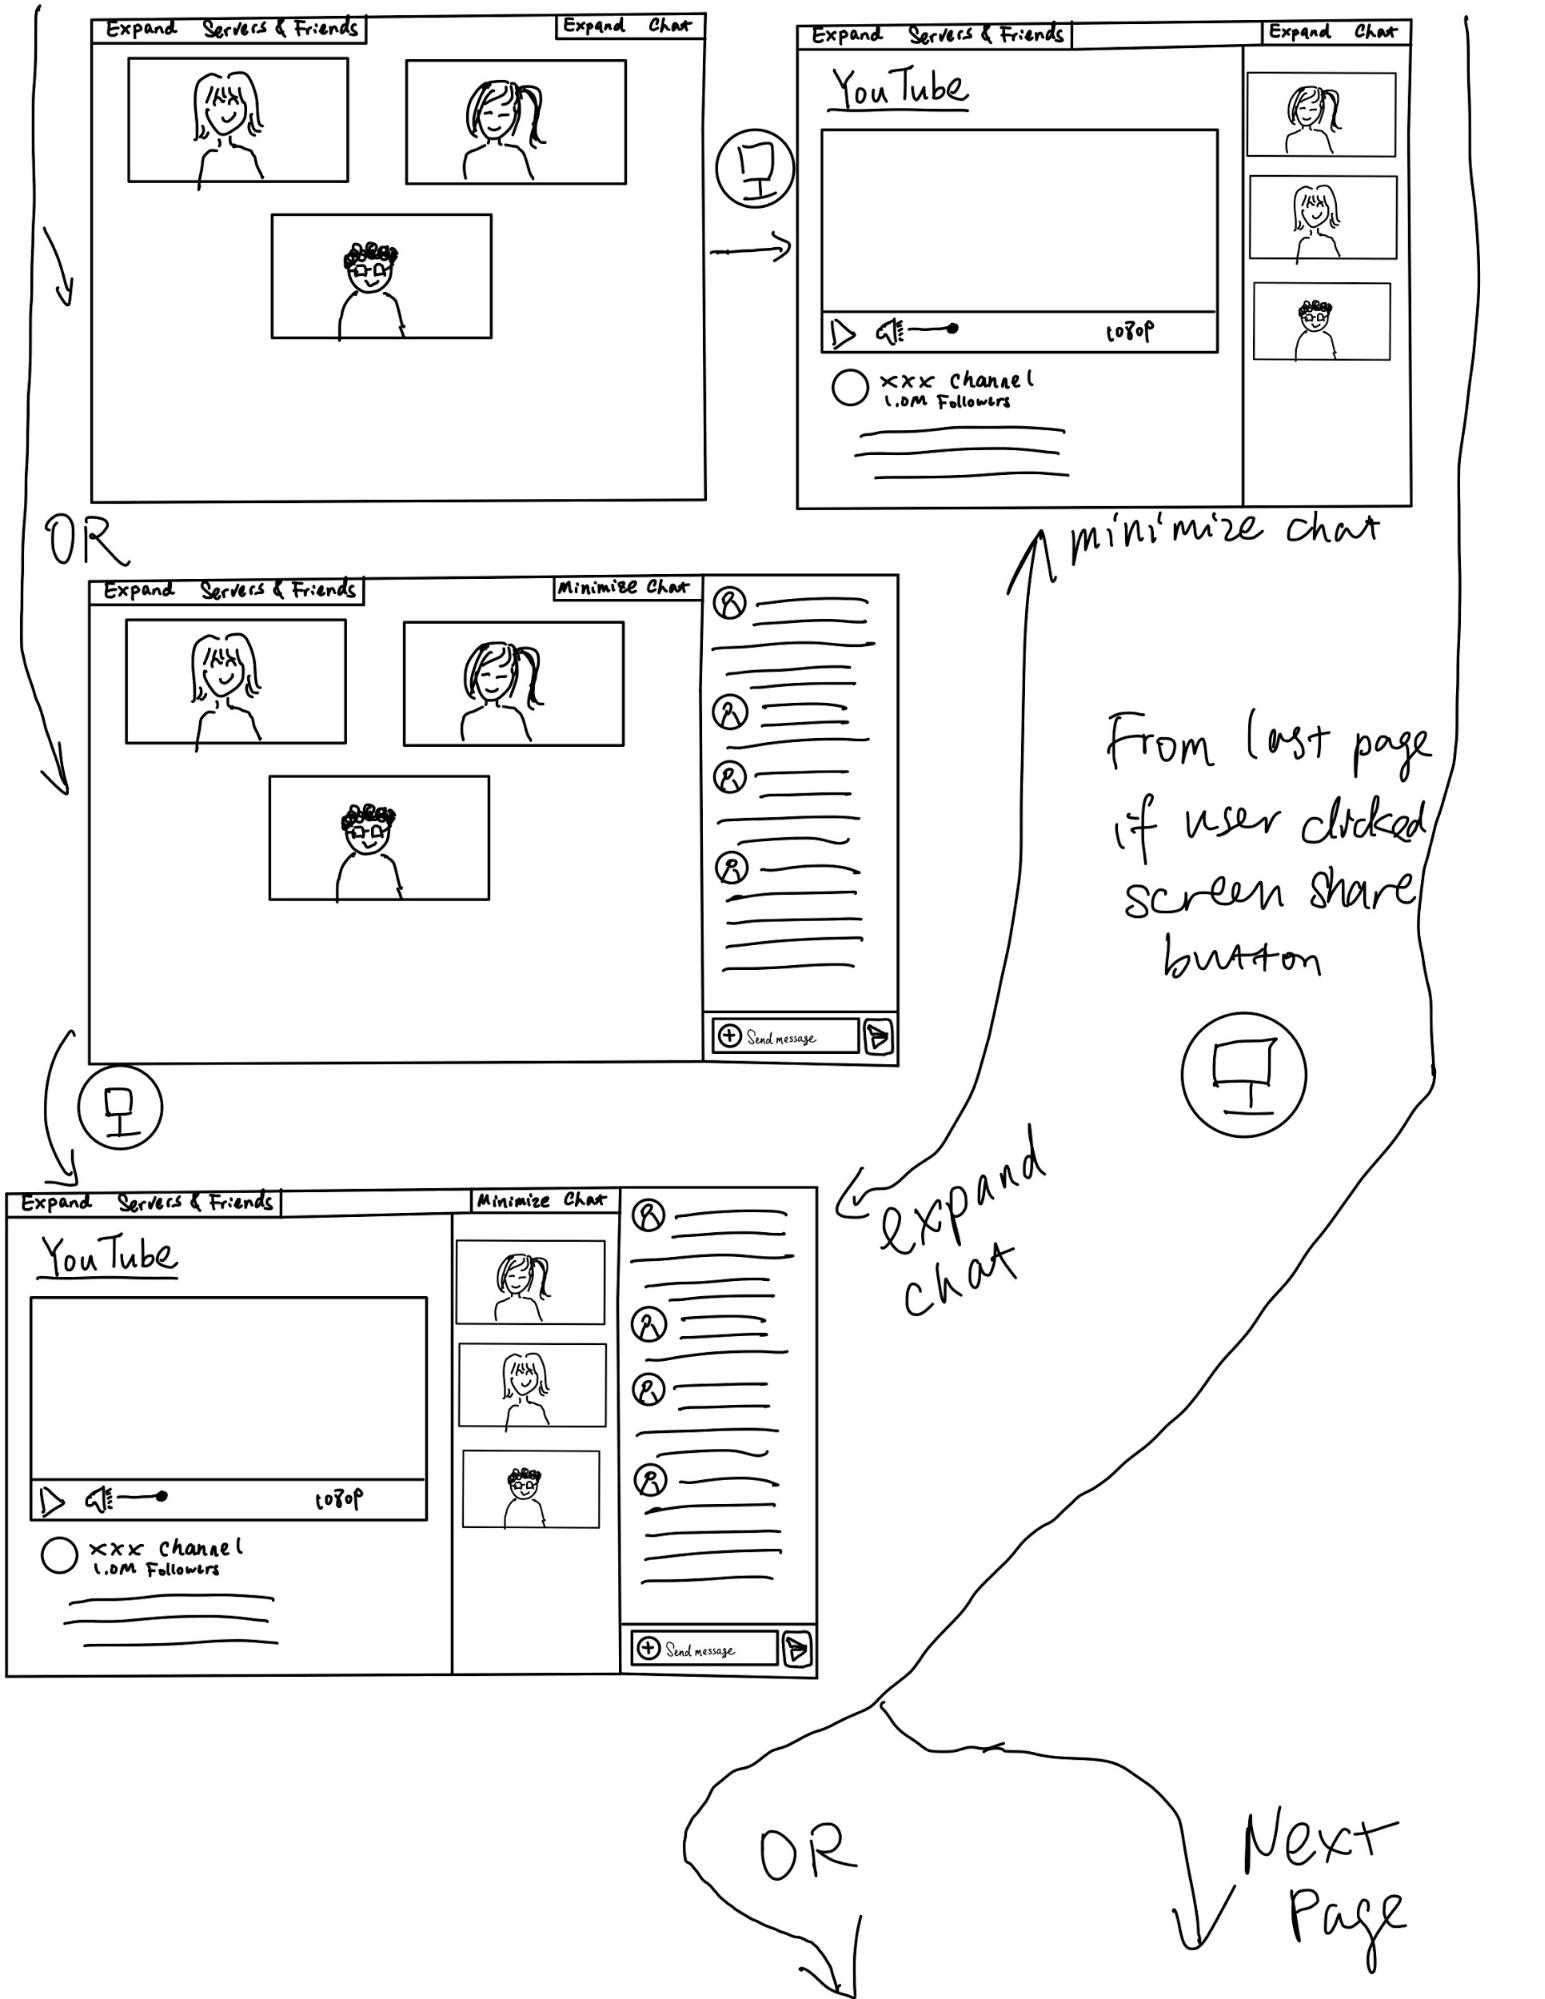 Expand Servers & Friends
Expand Chat
Expand Servers & Friends
Expand Chat
YouTube
1080p
xxx channel
1.0M Followers
OR
minimize chat
Expand Servers & Friends
Minimize Chat
Send message
From last page
if user clicked
screen share
button
expand
chat
Expand Servers & Friends
Minimize Chat
YouTube
1080p
xxx channel
1.0M Followers
Send message
OR
Next
Page